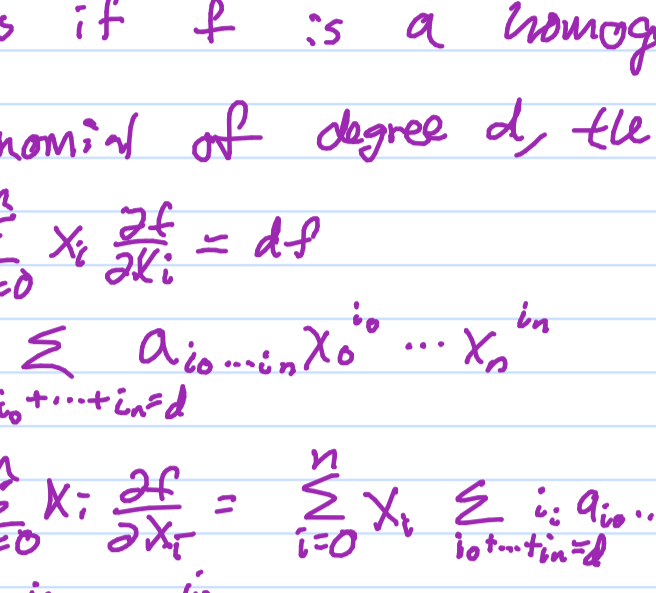 s if f is a homog
nomial of degree d, the
n ∑ =0 x_i ∂f/∂x_i = df
∑ a_{i_0...i_n} x_0^{i_0} ... x_n^{i_n}
i_0+...+i_n=d
n ∑ =0 x_i ∂f/∂x_i = ∑_{i=0}^{n} x_i ∑_{i_0+...+i_n=d} i_i a_{i_0...